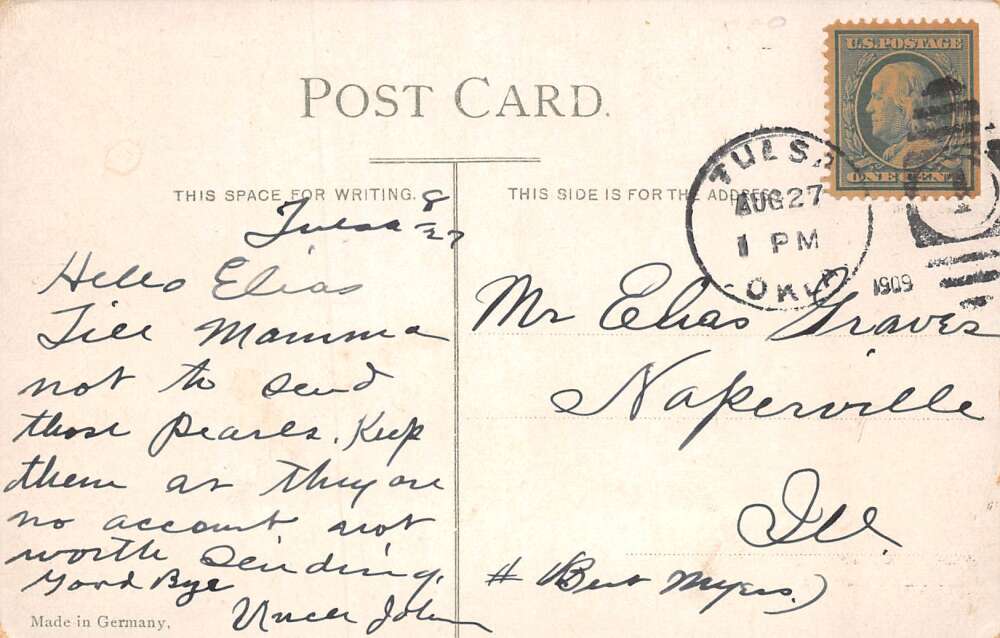 U.S.POSTAGE
ONE CENT
POST CARD.
TULSA
AUG 27
1 PM
OKLA
1909
THIS SPACE FOR WRITING.
THIS SIDE IS FOR THE ADDRESS
Tulsa 8/27
Hello Elias
Till Mamma
not to send
those pearls. Keep
them as they are
no account not
worth sending.
Good Bye
Uncle John
Mr Elias Graves
Naperville
Ill
# (Bert Myers.)
Made in Germany.